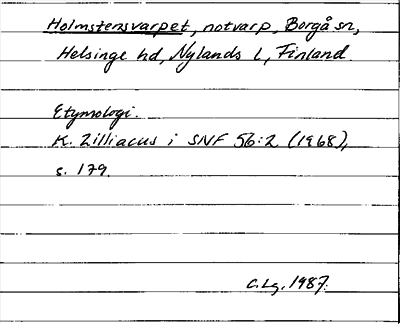 Holmstensvarpet, notvarp, Borgå sn,
Helsinge hd, Nylands l, Finland.
Etymologi.
K. Zilliacus i SNF 56:2 (1968),
s. 179.
C.Lg. 1987.